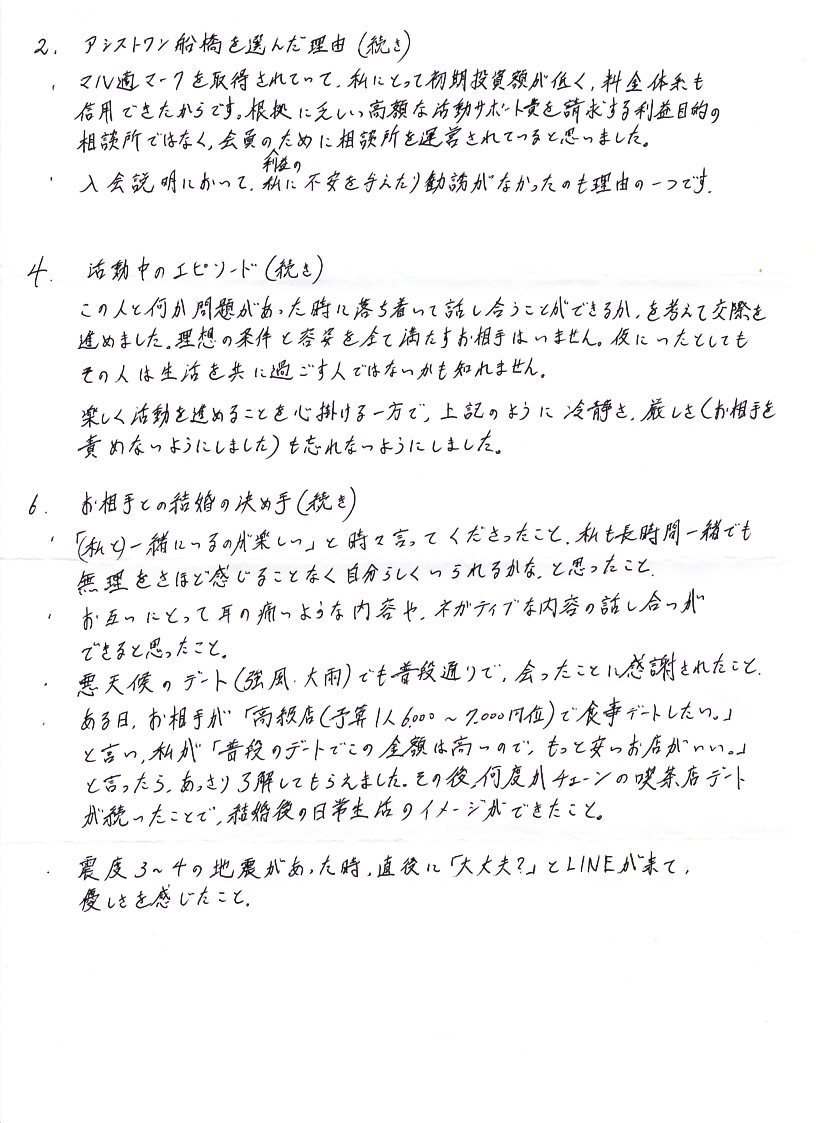 2. アシストワン船橋を選んだ理由(続き)
・マル適マークを取得されていて、私にとって初期投資額が低く、料金体系も
信用できたからです。根拠に乏しい高額な活動サポート費を請求する利益目的の
相談所ではなく、会員の利益のために相談所を運営されていると思いました。
・入会説明において、私に不安を与えたり勧誘がなかったのも理由の一つです。
4. 活動中のエピソード(続き)
この人と何か問題があった時に落ち着いて話し合うことができるか、を考えて交際を
進めました。理想の条件と容姿を全て満たすお相手はいません。仮にいたとしても
その人は生活を共に過ごす人ではないかも知れません。
楽しく活動を進めることを心掛ける一方で、上記のように冷静さ、厳しさ(お相手を
責めないようにしました)も忘れないようにしました。
6. お相手との結婚の決め手(続き)
・「(私と)一緒にいるのが楽しい」と時々言ってくださったこと、私も長時間一緒でも
無理をさほど感じることなく自分らしくいられるかな、と思ったこと。
・お互いにとって耳の痛いような内容や、ネガティブな内容の話し合いが
できると思ったこと。
・悪天候のデート(強風・大雨)でも普段通りで、会ったことに感謝されたこと。
・ある日、お相手が「高級店(予算1人6,000～7,000円位)で食事デートしたい。」
と言い、私が「普段のデートでこの金額は高いので、もっと安いお店がいい。」
と言ったら、あっさり了解してもらえました。その後、何度かチェーンの喫茶店デート
が続いたことで、結婚後の日常生活のイメージができたこと。
・震度3～4の地震があった時、直後に「大丈夫?」とLINEが来て、
優しさを感じたこと。